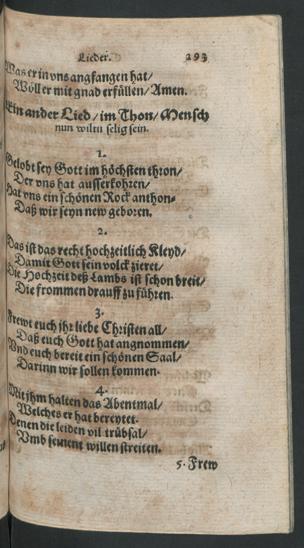 Lieder. 293
Was er in vns angfangen hat/
Wöll er mit gnad erfüllen/ Amen.
Ein ander Lied/ im Thon/ Mensch
nun wiltu selig sein.
1.
Gelobt sey Gott im höchsten thron/
Der vns hat ausserkohren/
Hat vns ein schönen Rock anthon-
Daß wir seyn new geboren.
2.
Das ist das recht hochzeitlich Kleyd/
Damit Gott sein volck zieret/
Die Hochzeit deß Lambs ist schon breit/
Die frommen drauff zu führen.
3.
Frewt euch ihr liebe Christen all/
Daß euch Gott hat angnommen/
Vnd euch bereit ein schönen Saal/
Darinn wir sollen kommen.
4.
Mit jhm halten das Abentmal/
Welches er hat bereytet.
Denen die leiden vil trübsal/
Vmb seinent willen streiten.
5. Frew